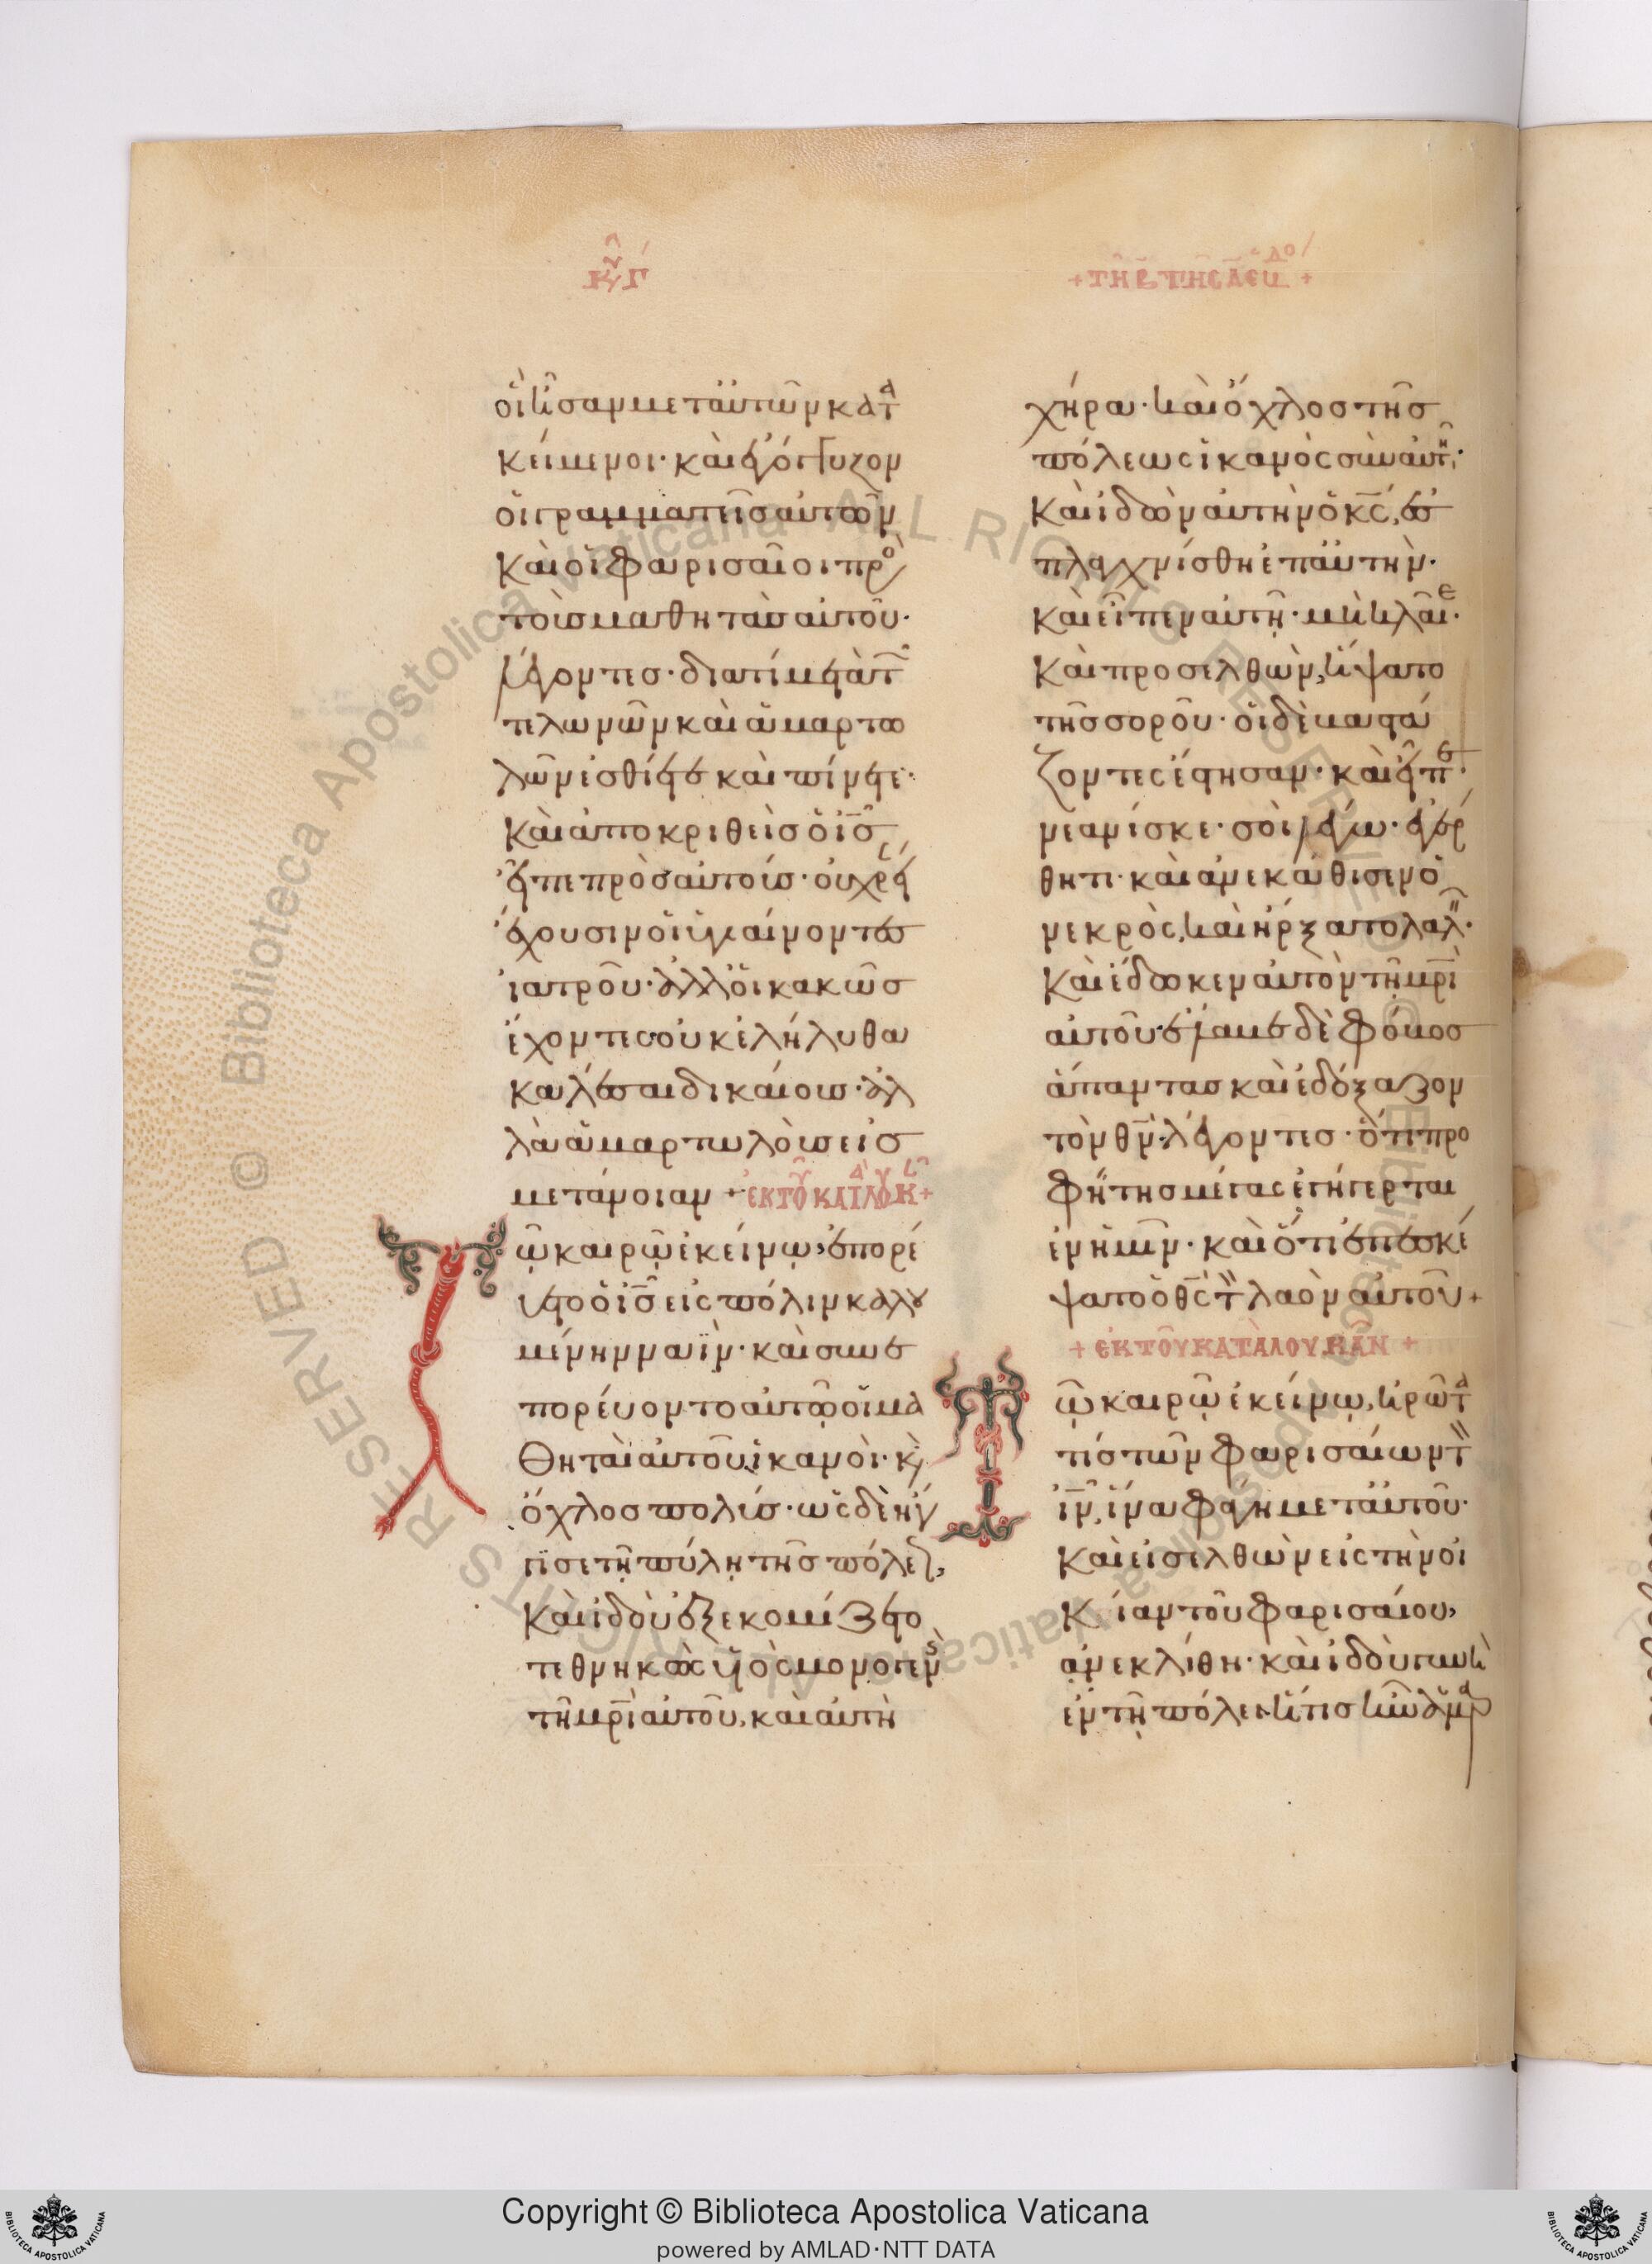 Κυ Γ
+ ΤΗ Β ΤΗΣ Δ ΕΒΔΟ +
οἳ ἦσαν μετ' αὐτῶν κατα
κείμενοι· καὶ ἐγόγγυζον
οἱ γραμματεῖς αὐτῶν
καὶ οἱ φαρισαῖοι πρὸ
τοὺς μαθητὰς αὐτοῦ·
λέγοντες· διατί μετὰ τῶν
τελωνῶν καὶ ἁμαρτω
λῶν ἐσθίετε καὶ πίνετε·
Καὶ ἀποκριθεὶς ὁ ις
εἶπε πρὸς αὐτούς· οὐ χρεί
ἔχουσιν οἱ ὑγιαίνοντες
ἰατροῦ· ἀλλ' οἱ κακῶς
ἔχοντες οὐκ ἐλήλυθα
καλέσαι δικαίους· ἀλ
λὰ ἁμαρτωλοὺς εἰς
μετάνοιαν + ἐκ τοῦ κατὰ Λουκ +
Τῶ καιρῶ ἐκείνω, ἐπορεύ
ετο ὁ ις εἰς πόλιν καλου
μένην ναΐν· καὶ συνε
πορεύοντο αὐτῶ οἱ μα
θηταὶ αὐτοῦ ἱκανοὶ· κ
ὄχλος πολύς· ὡς δὲ ἤγ
γισε τῆ πύλη τῆς πόλεως,
Καὶ ἰδοὺ ἐξεκομίζετο
τεθνηκὼς υἱὸς μονογενὴς
τῆ μρι αὐτοῦ, καὶ αὐτὴ
χήρα· καὶ ὄχλος τῆς
πόλεως ἱκανὸς σὺν αὐτῆ·
Καὶ ἰδὼν αὐτὴν ὁ κς, ἐσ
πλαχνίσθη ἐπ' αὐτήν·
Καὶ εἶπεν αὐτῆ· μὴ κλαῖε·
Καὶ προσελθὼν, ἥψατο
τῆς σοροῦ· οἱ δὲ βαστά
ζοντες ἔστησαν· καὶ εἶπε·
νεανίσκε· σοὶ λέγω· ἐγέρ
θητι· καὶ ἀνεκάθισεν ὁ
νεκρὸς, καὶ ἤρξατο λαλεῖν·
Καὶ ἔδωκεν αὐτὸν τῆ μρι
αὐτοῦ· ἔλαβε δὲ φόβος
ἅπαντας καὶ ἐδόξαζον
τὸν θν· λέγοντες· ὅτι προ
φήτης μέγας ἐγήγερται
ἐν ἡμῖν· καὶ ὅτι ἐπεσκέ
ψατο ὁ θς τὸν λαὸν αὐτοῦ +
+ ἐκ τοῦ κατὰ Λουκᾶν +
Τῶ καιρῶ ἐκείνω, ἠρῶτα
τίς τῶν φαρισαίων τὸν
ιν, ἵνα φάγη μετ' αὐτοῦ·
Καὶ εἰσελθὼν εἰς τὴν οἰ
κίαν τοῦ φαρισαίου,
ἀνεκλίθη· καὶ ἰδοὺ γυνὴ
ἐν τῆ πόλει ἥτις ἦν ἁμαρ